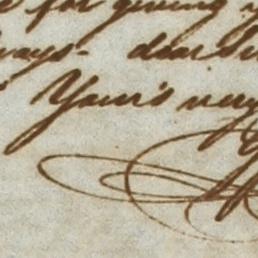 for giving
always - dear Sir
Your's very